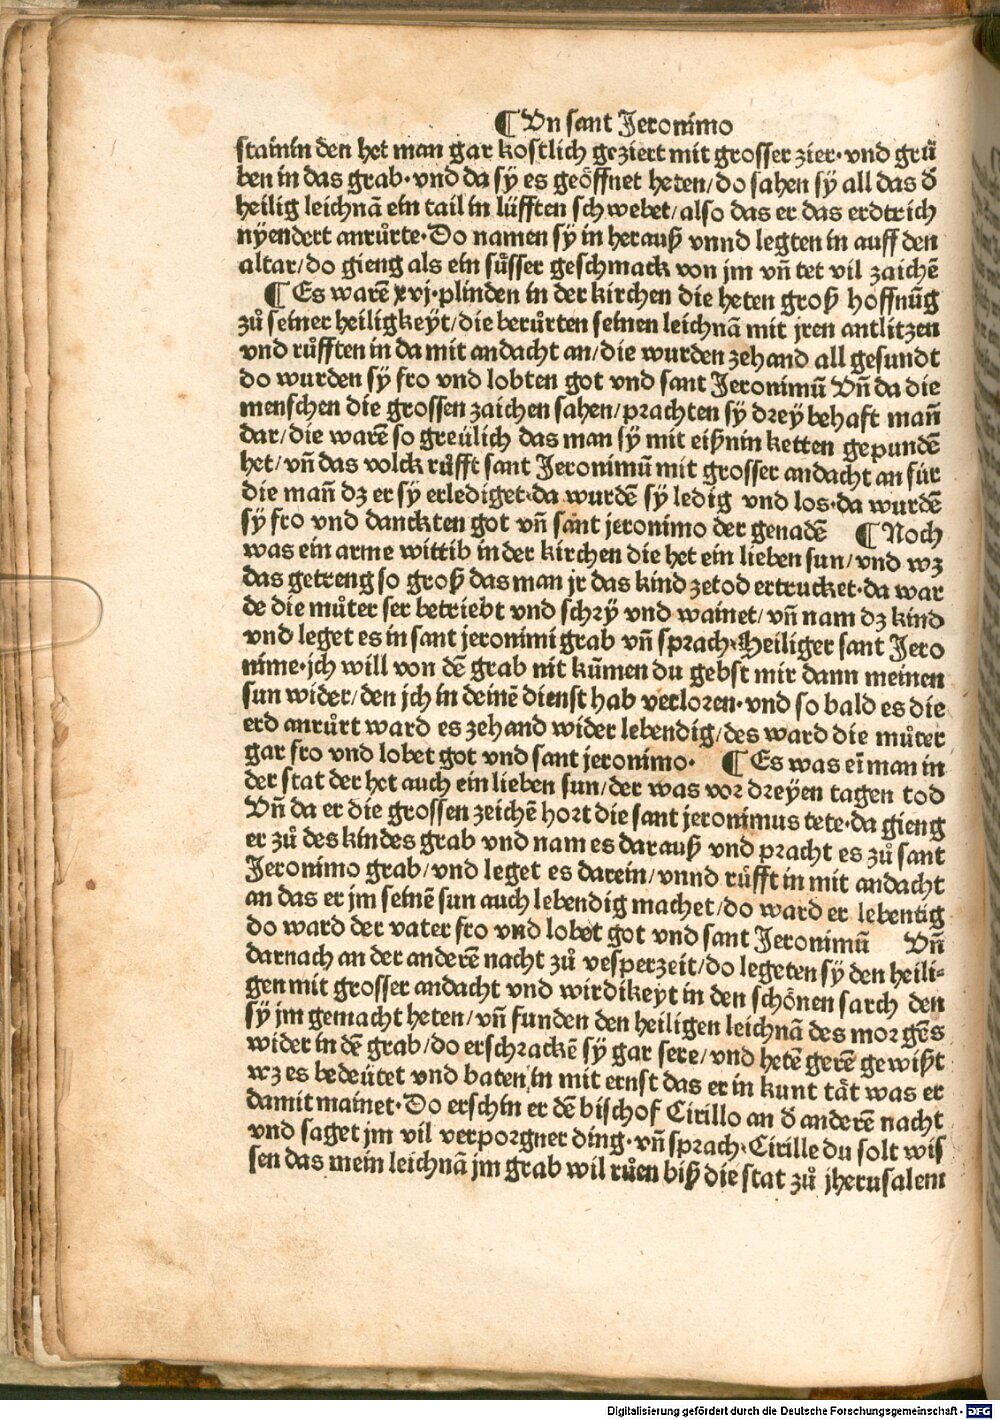 ¶ Vn sant Jeronimo
stainin den het man gar kostlich geziert mit grosser zier· vnd grů
ben in das grab· vnd da sÿ es geöffnet heten/ do sahen sÿ all das d̕
heilig leichnā ein tail in lüfften schwebet/ also das er das erdtrich
nÿendert anrůrte· Do namen sÿ in herauß vnnd legten in auff den
altar/ do gieng als ein sůsser geschmack von jm vñ tet vil zaichē
¶ Es warē xvj· plinden in der kirchen die heten groß hoffnūg
zů seiner heiligkeÿt/ die berůrten seinen leichnā mit jren antlitzen
vnd růfften in da mit andacht an/ die wurden zehand all gesundt
do wurden sÿ fro vnd lobten got vnd sant Jeronimū Vñ da die
menschen die grossen zaichen sahen/ prachten sÿ dreÿ behaft mañ
dar/ die warē so greülich das man sÿ mit eißnin ketten gepundē
het/ vñ das volck růfft sant Jeronimū mit grosser andacht an für
die mañ dz er sÿ erlediget· da wurdē sÿ ledig vnd los· da wurdē
sÿ fro vnd danckten got vñ sant jeronimo der genadē ¶ Noch
was ein arme wittib in der kirchen die het ein lieben sun/ vnd wz
das getreng so groß das man jr das kind zetod ertrucket· da war
de die můter ser betriebt vnd schrÿ vnd wainet/ vñ nam dz kind
vnd leget es in sant jeronimi grab vñ sprach· Heiliger sant Jero
nime· jch will von dē grab nit kūmen du gebst mir dann meinen
sun wider/ den jch in deinē dienst hab verloren· vnd so bald es die
erd anrůrt ward es zehand wider lebendig/ des ward die můter
gar fro vnd lobet got vnd sant jeronimo· ¶ Es was eī man in
der stat der het auch ein lieben sun/ der was vor dreÿen tagen tod
Vñ da er die grossen zeichē hort die sant jeronimus tete· da gieng
er zů des kindes grab vnd nam es darauß vnd pracht es zů sant
Jeronimo grab/ vnd leget es darein/ vnnd růfft in mit andacht
an das er jm seinē sun auch lebendig machet/ do ward er lebentig
do ward der vater fro vnd lobet got vnd sant Jeronimū Vñ
darnach an der anderē nacht zů vesperzeit/ do legeten sÿ den heili⸗
gen mit grosser andacht vnd wirdikeyt in den schönen sarch den
sÿ jm gemacht heten/ vñ funden den heiligen leichnā des morgēs
wider in dē grab/ do erschrackē sÿ gar sere/ vnd hetē gerē gewißt
wz es bedeütet vnd baten in mit ernst das er in kunt tät was er
damit mainet· Do erschin er dē bischof Cirillo an d̕ anderē nacht
vnd saget jm vil verporgner ding· vñ sprach· Cirille du solt wis
sen das mein leichnā jm grab wil růen biß die stat zů jherusalem
Digitalisierung gefördert durch die Deutsche Forschungsgemeinschaft - DFG